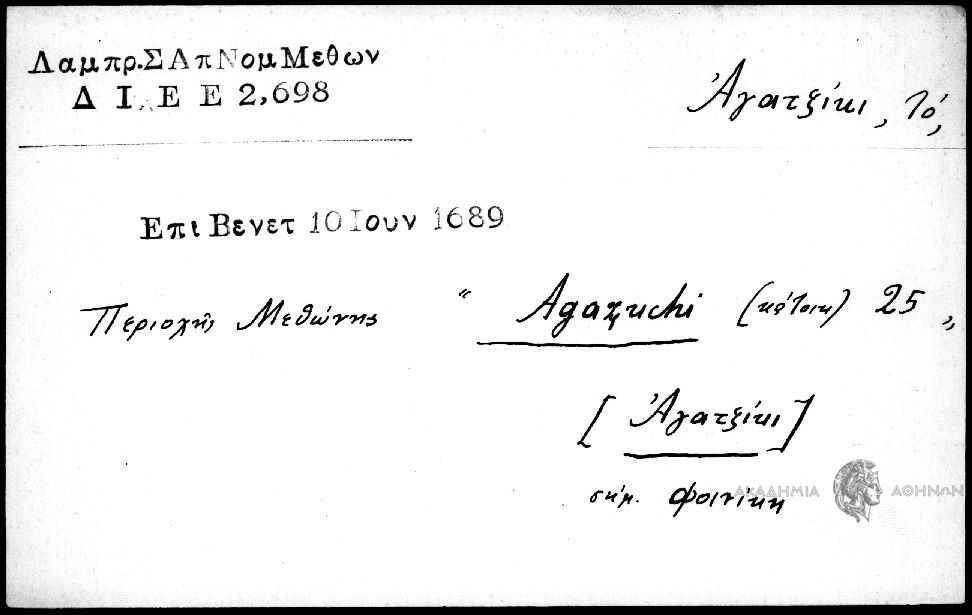 Λαμπρ.ΣΑπΝομΜεθων
Δ Ι. Ε Ε 2,698
Ἀγατζίκι, τό,
Επι Βενετ 10Ιουν 1689
Περιοχή Μεθώνης “ Agazuchi (κάτοικ) 25 „
[Ἀγατζίκι]
σήμ. Φοινίκη
ΑΚΑΔΗΜΙΑ ΑΘΗΝΩΝ